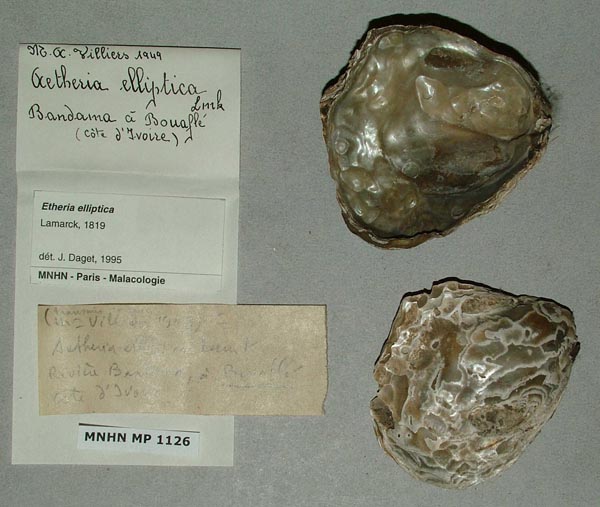 M. A. Villiers 1949
Aetheria elliptica
Lmk
Bandama à Bouaflé
(côte d'Ivoire)
Etheria elliptica
Lamarck, 1819
dét. J. Daget, 1995
MNHN - Paris - Malacologie
Aetheria
Rivière à Bouaflé
Côte d'Ivoire
MNHN MP 1126